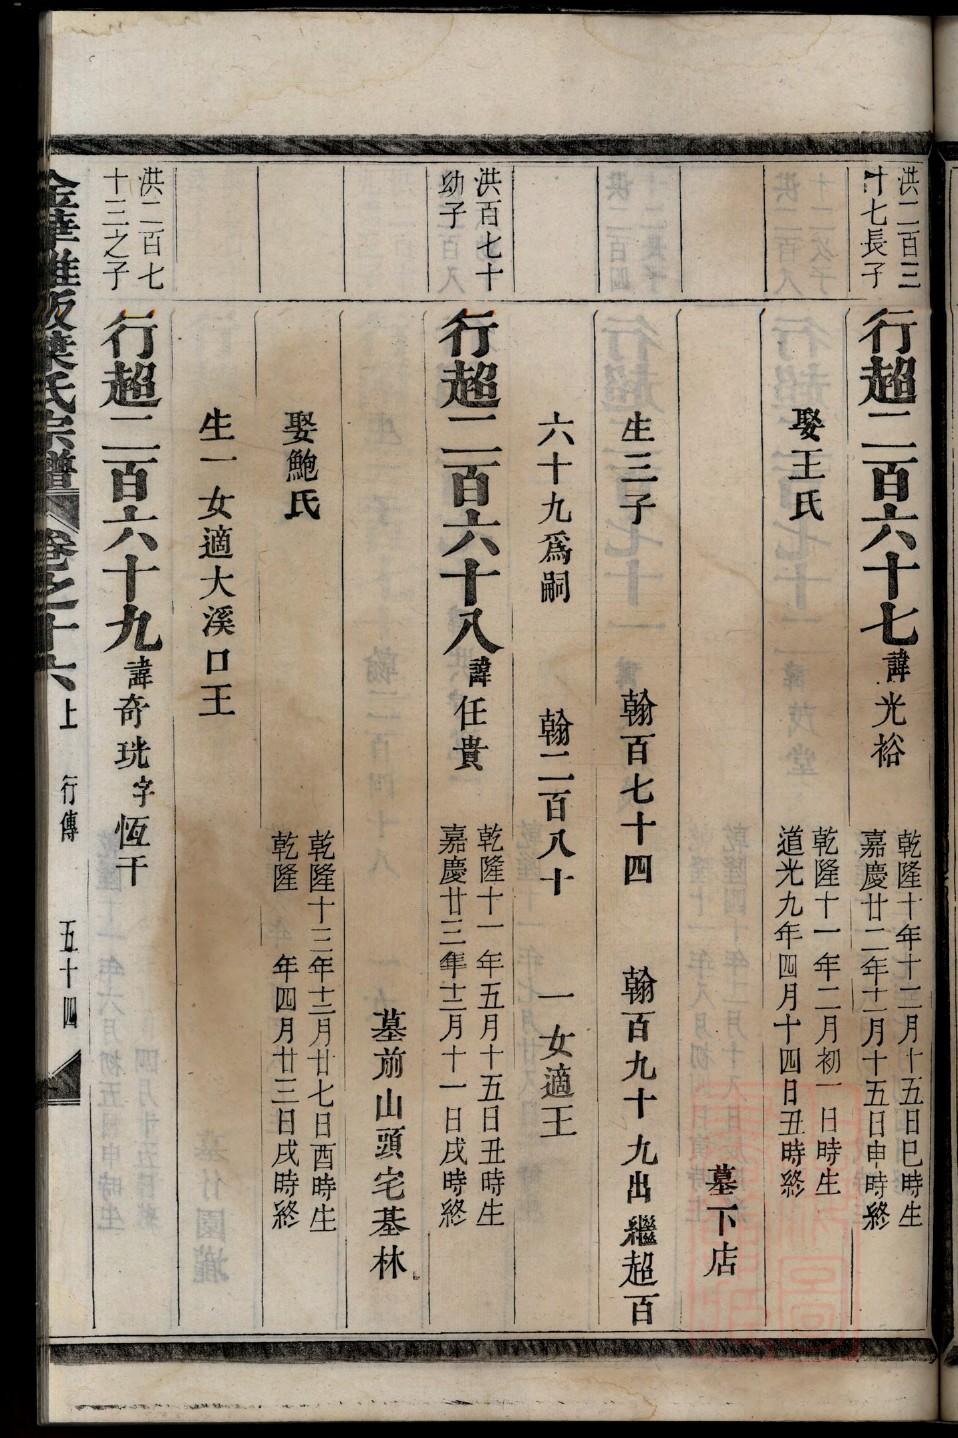 洪二百三
十七長子
行超二百六十七諱光裕
乾隆十年十二月十五日巳時生
嘉慶廿二年十二月十五日申時終
娶王氏
乾隆十一年二月初一日時生
道光九年四月十四日丑時終
墓下店
生三子 翰百七十四 翰百九十九出繼超百
六十九爲嗣 翰二百八十 一女適王
洪百七十
幼子
行超二百六十八諱任貴
乾隆十一年五月十五日丑時生
嘉慶廿三年十二月十一日戌時終
墓前山頭宅基林
娶鮑氏
乾隆十三年十二月廿七日酉時生
乾隆 年四月廿三日戌時終
生一女適大溪口王
洪二百七
十三之子
行超二百六十九諱奇珖字恆干
金華 葉氏宗譜 卷之十六上 行傳 五十四